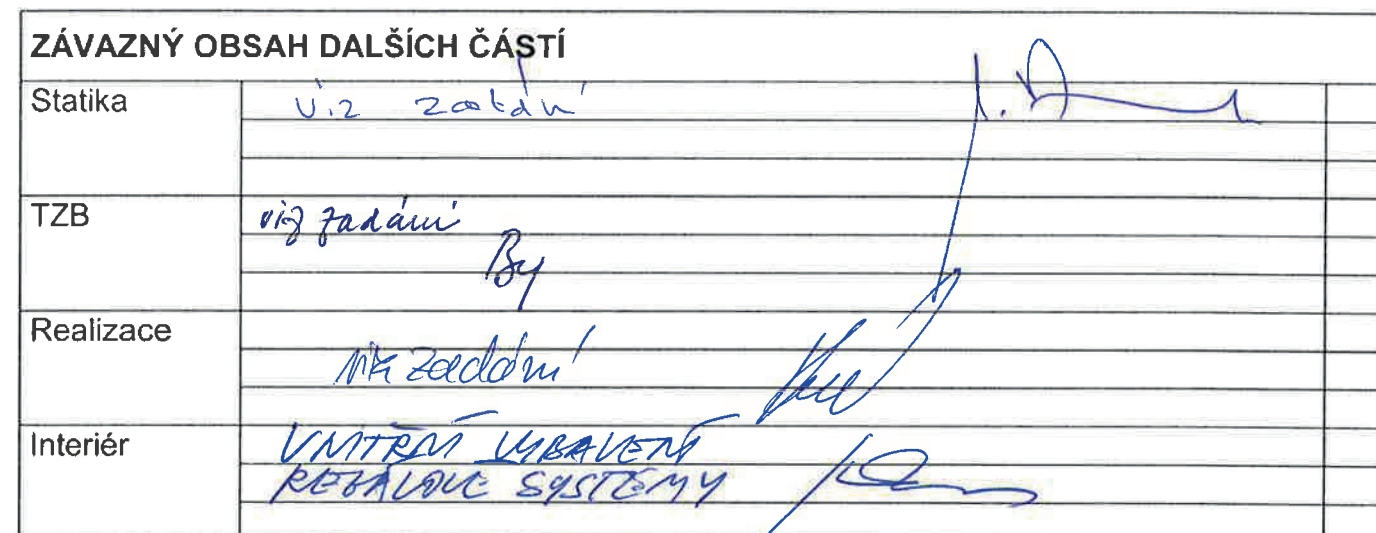 ZÁVAZNÝ OBSAH DALŠÍCH ČÁSTÍ
Statika viz zadání
TZB viz zadání
By
Realizace viz zadání
Interiér VNITŘNÍ VYBAVENÍ
REGÁLOVÉ SYSTÉMY